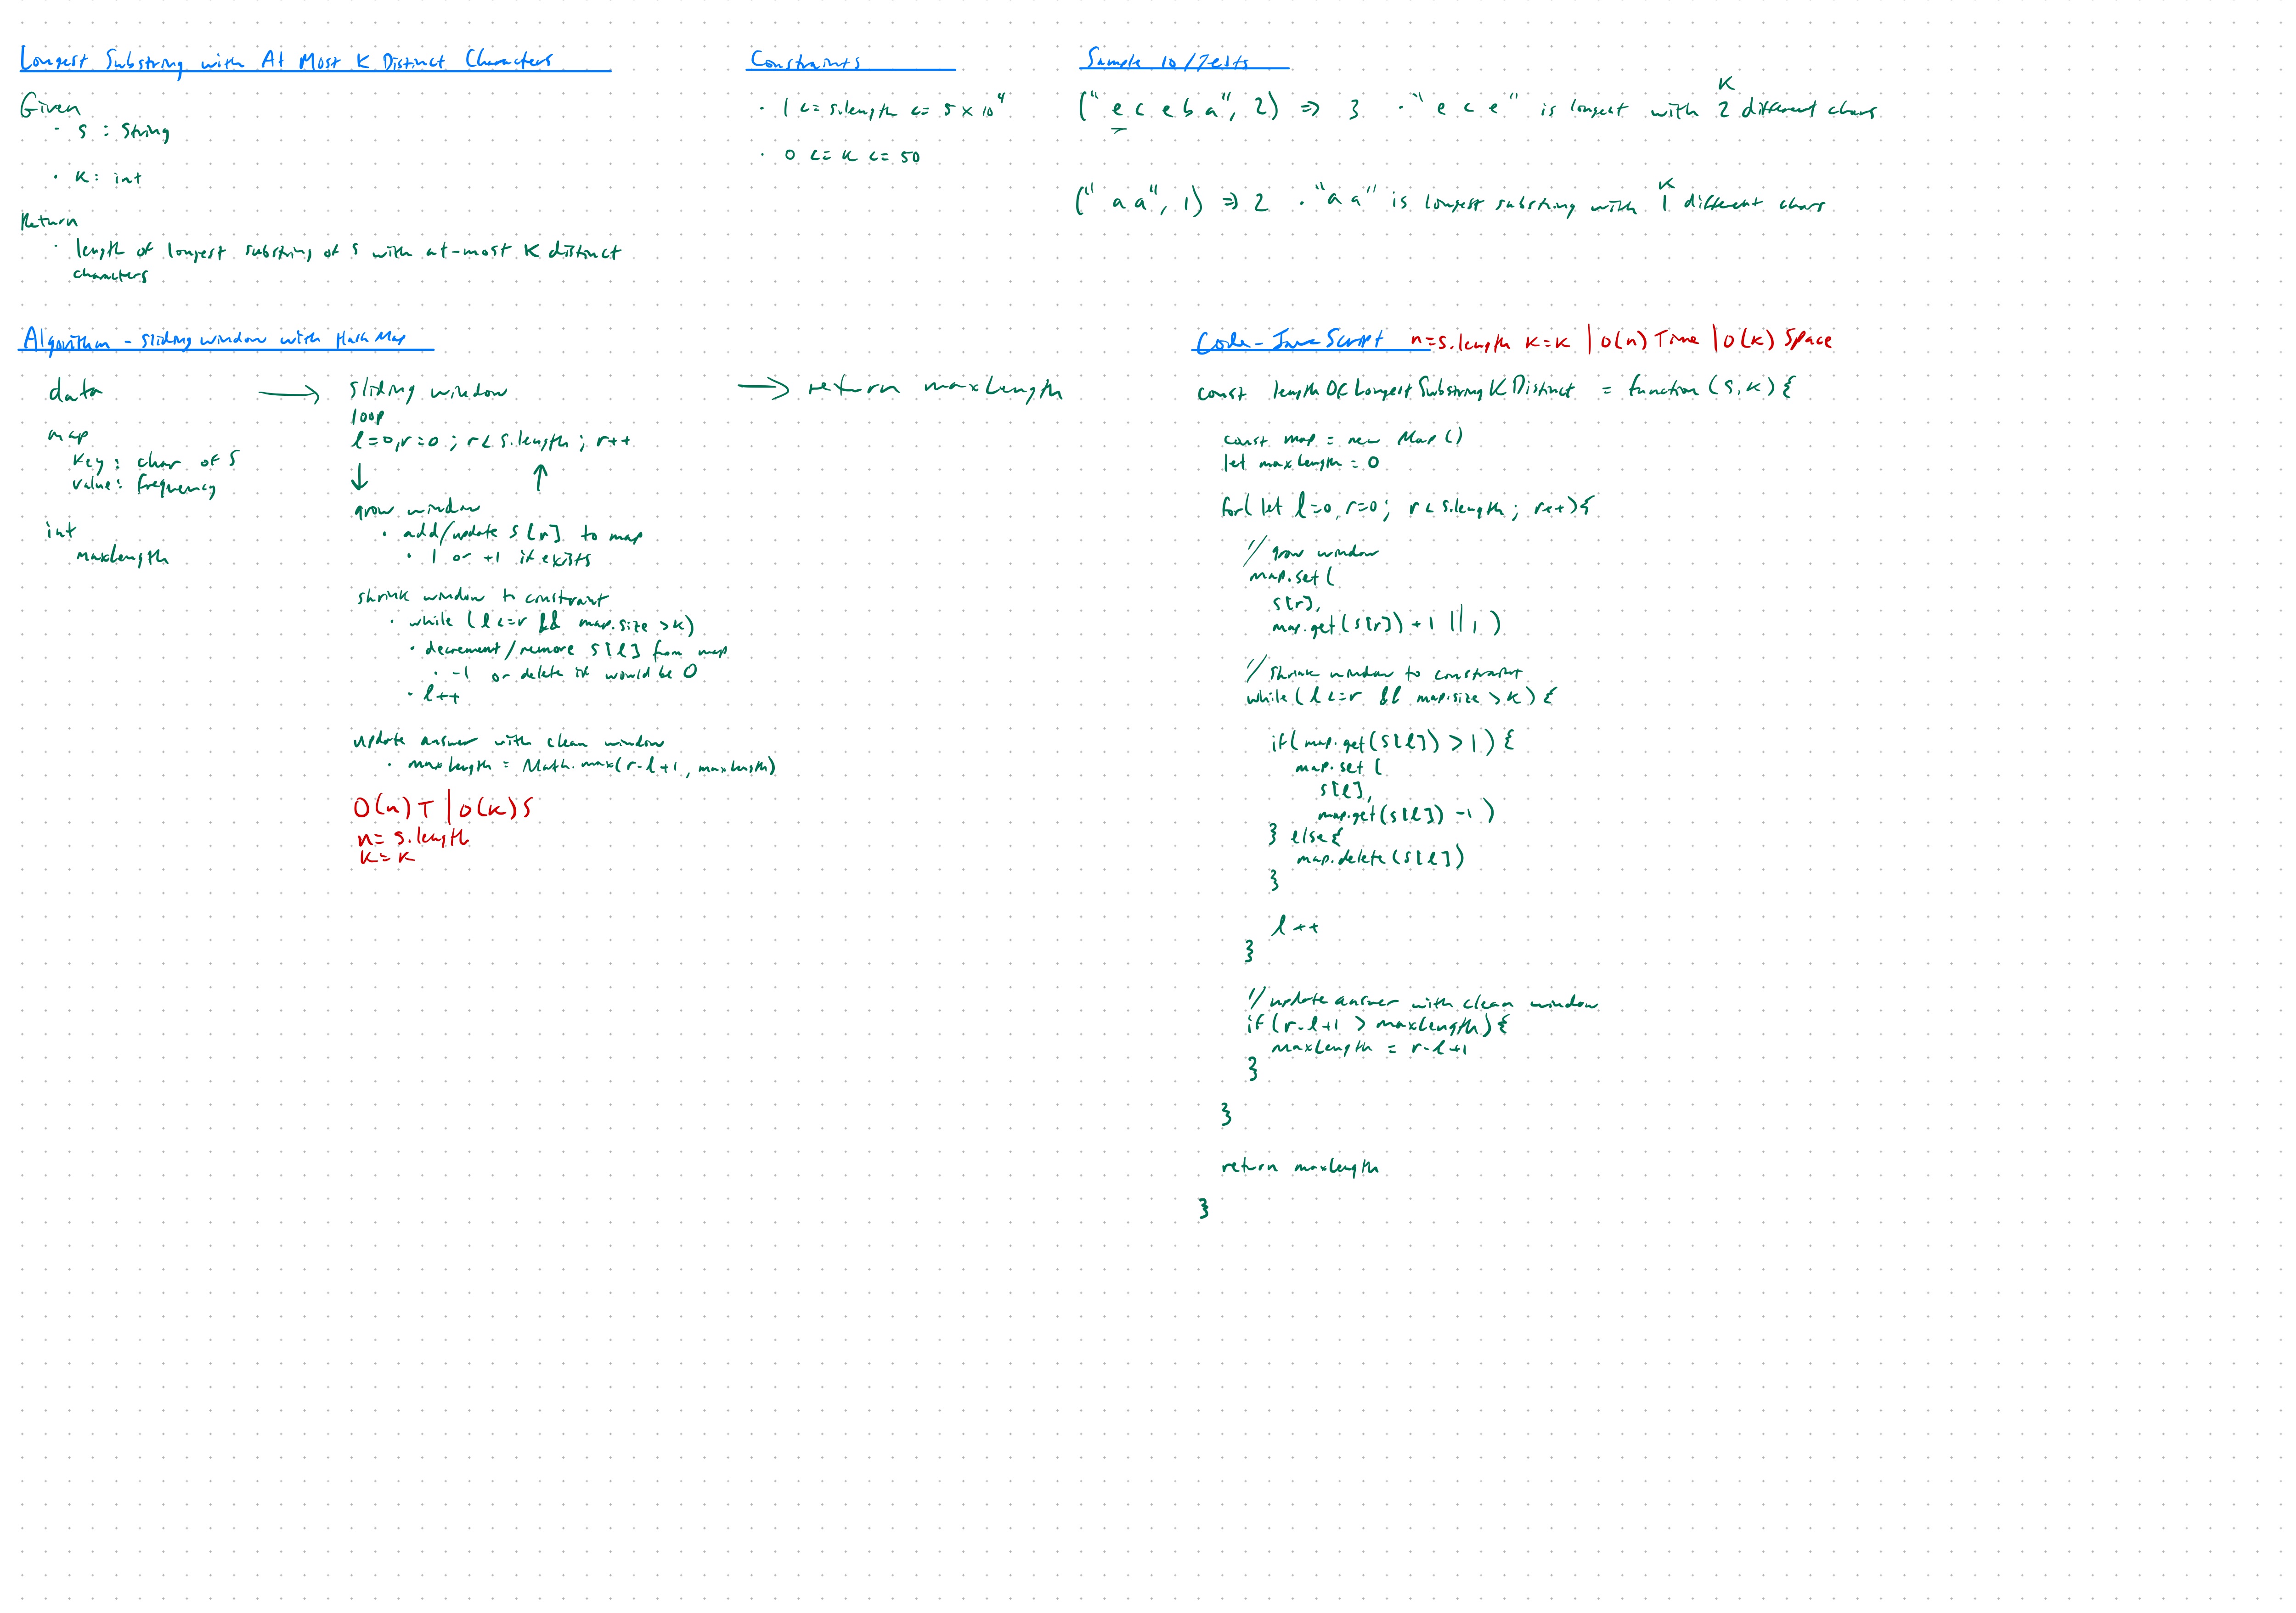 Longest Substring with At Most K Distinct Characters
Given
· S : String
· K : int
Return
· length of longest substring of S with at-most K distinct
characters
Constraints
· 1 <= s.length <= 5 × 10⁴
· 0 <= K <= 50
Sample IO/Tests
K
("e c e b a", 2) => 3 · "e c e" is longest with 2 different chars
K
("a a", 1) => 2 · "a a" is longest substring with 1 different chars
Algorithm - Sliding window with Hash Map
data
map
Key : char of S
value : frequency
int
maxLength
→ sliding window
loop
l=0, r=0 ; r < s.length ; r++
↓ ↑
grow window
· add/update s[r] to map
· 1 or +1 if exists
shrink window to constraint
· while (l <= r && map.size > K)
· decrement/remove s[l] from map
· -1 or delete if would be 0
· l++
update answer with clean window
· maxLength = Math.max(r-l+1, maxLength)
O(n) T | O(K) S
n = s.length
K = K
→ return maxLength
Code - JavaScript n=s.length K=K | O(n) Time | O(K) Space
const lengthOfLongestSubstringKDistinct = function (S, K) {
const map = new Map()
let maxLength = 0
for( let l=0, r=0; r < s.length; r++){
// grow window
map.set(
s[r],
map.get(s[r]) + 1 || 1 )
// Shrink window to constraint
while (l <= r && map.size > K) {
if( map.get(s[l]) > 1) {
map.set(
s[l],
map.get(s[l]) -1 )
} else{
map.delete(s[l])
}
l ++
}
// update answer with clean window
if (r-l+1 > maxLength){
maxLength = r-l+1
}
}
return maxLength
}